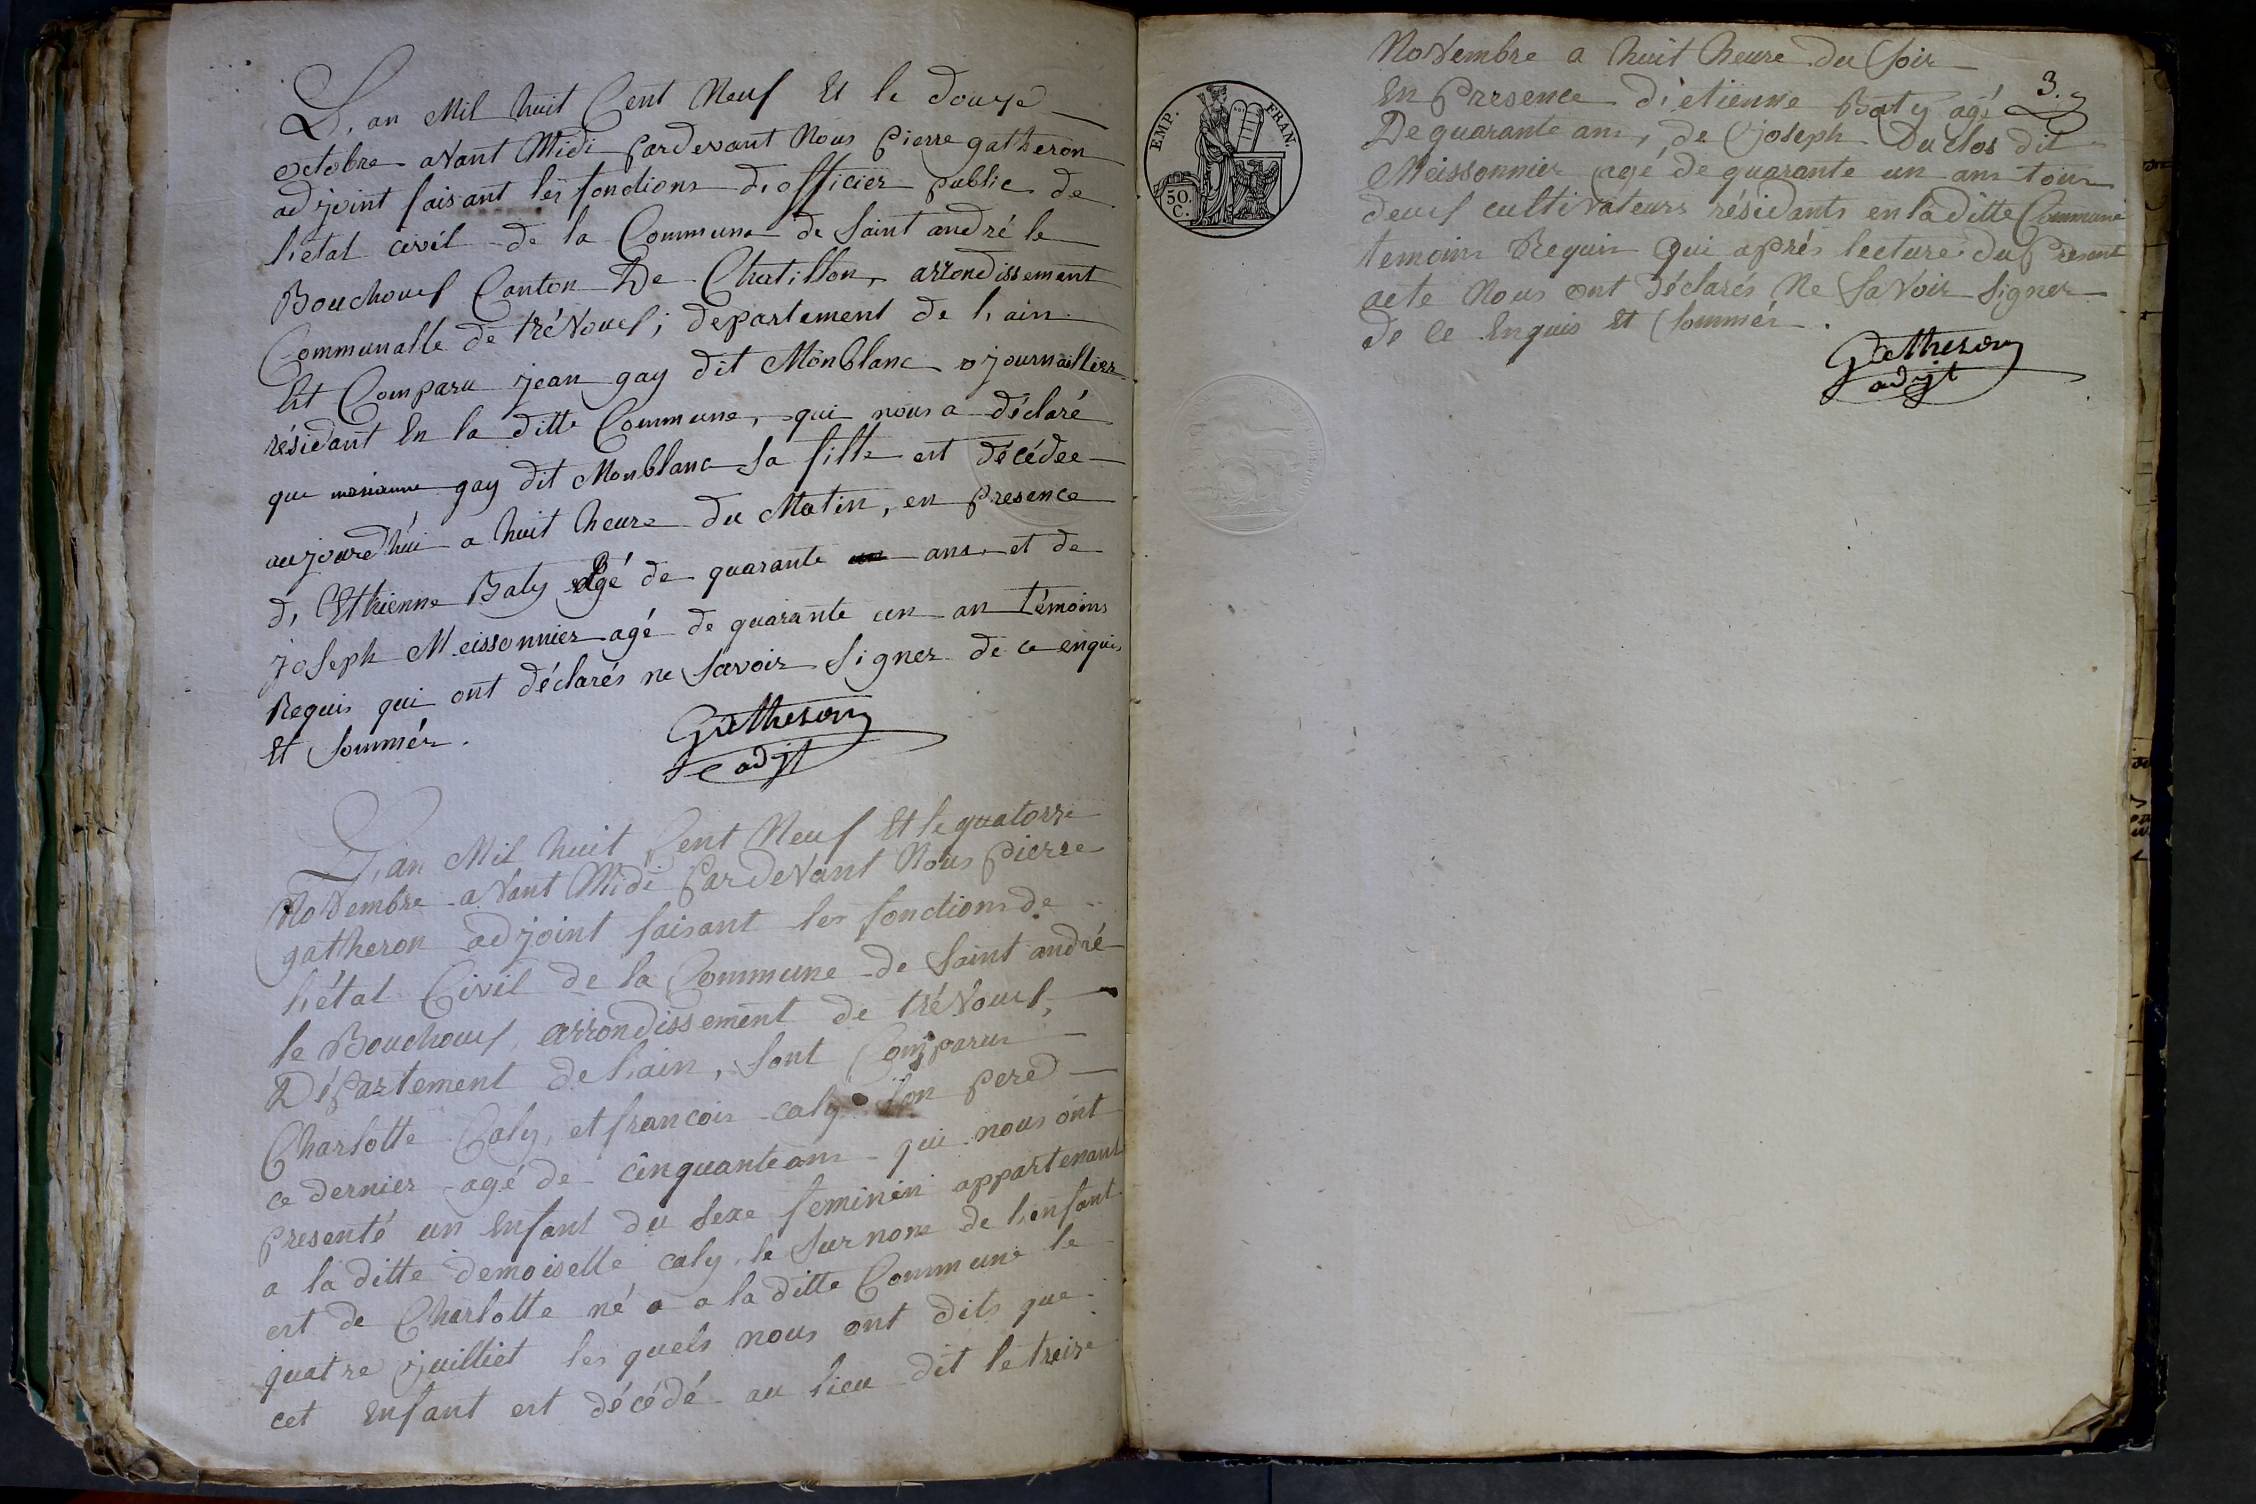 L'an Mil huit Cent Neuf Et le douze
octobre avant Midi pardevant Nous Pierre gatheron
adjoint faisant les fonctions d'officier public de
l'etat civil de la Commune de Saint andré le
Bouchoux Canton De Chatillon, arrondissement
Communalle de trévoux, departement de l'ain
Est Comparu jean gay dit Monblanc journallier
résidant En la ditte Commune, qui nous a déclaré
que marianne gay dit Monblanc Sa fille est décédee
aujourd'hui a huit heure du Matin, en presence
d'Ethienne Baty agé de quarante ans et de
joseph Meissonnier agé de quarante un an témoins
Requis qui ont déclarés ne Savoir Signer de ce enquis
Et Sommés.
Gatheron
adjt
L'an Mil huit Cent Neuf Et le quatorze
Novembre avant Midi pardevant Nous Pierre
gatheron adjoint faisant les fonctions de
l'état Civil de la Commune de Saint andré
le Bouchoux arrondissement de trévoux,
Département de l'ain, Sont Comparus
Charlotte Caly, et francois caly Son pere
ce dernier agé de cinquante ans qui nous ont
presenté un Enfant du Sexe feminin appartenant
a la ditte demoiselle caly, le Surnom de l'enfant
est de Charlotte né a la ditte Commune le
quatre juilliet les quels nous ont dits que
cet Enfant est décédé au lieu dit le treize
EMP. FRAN.
50. C.
3.
Novembre a huit heure du Soir
En Presence d'etienne Baty agé
De quarante ans, de joseph Duclos dit
Meissonnier agé de quarante un ans tous
deux cultivateurs résidants en la ditte Commune
temoins Requis qui aprés lecture du Présent
acte Nous ont déclarés Ne Savoir Signer
de ce Enquis Et Sommés.
Gatheron
adjt